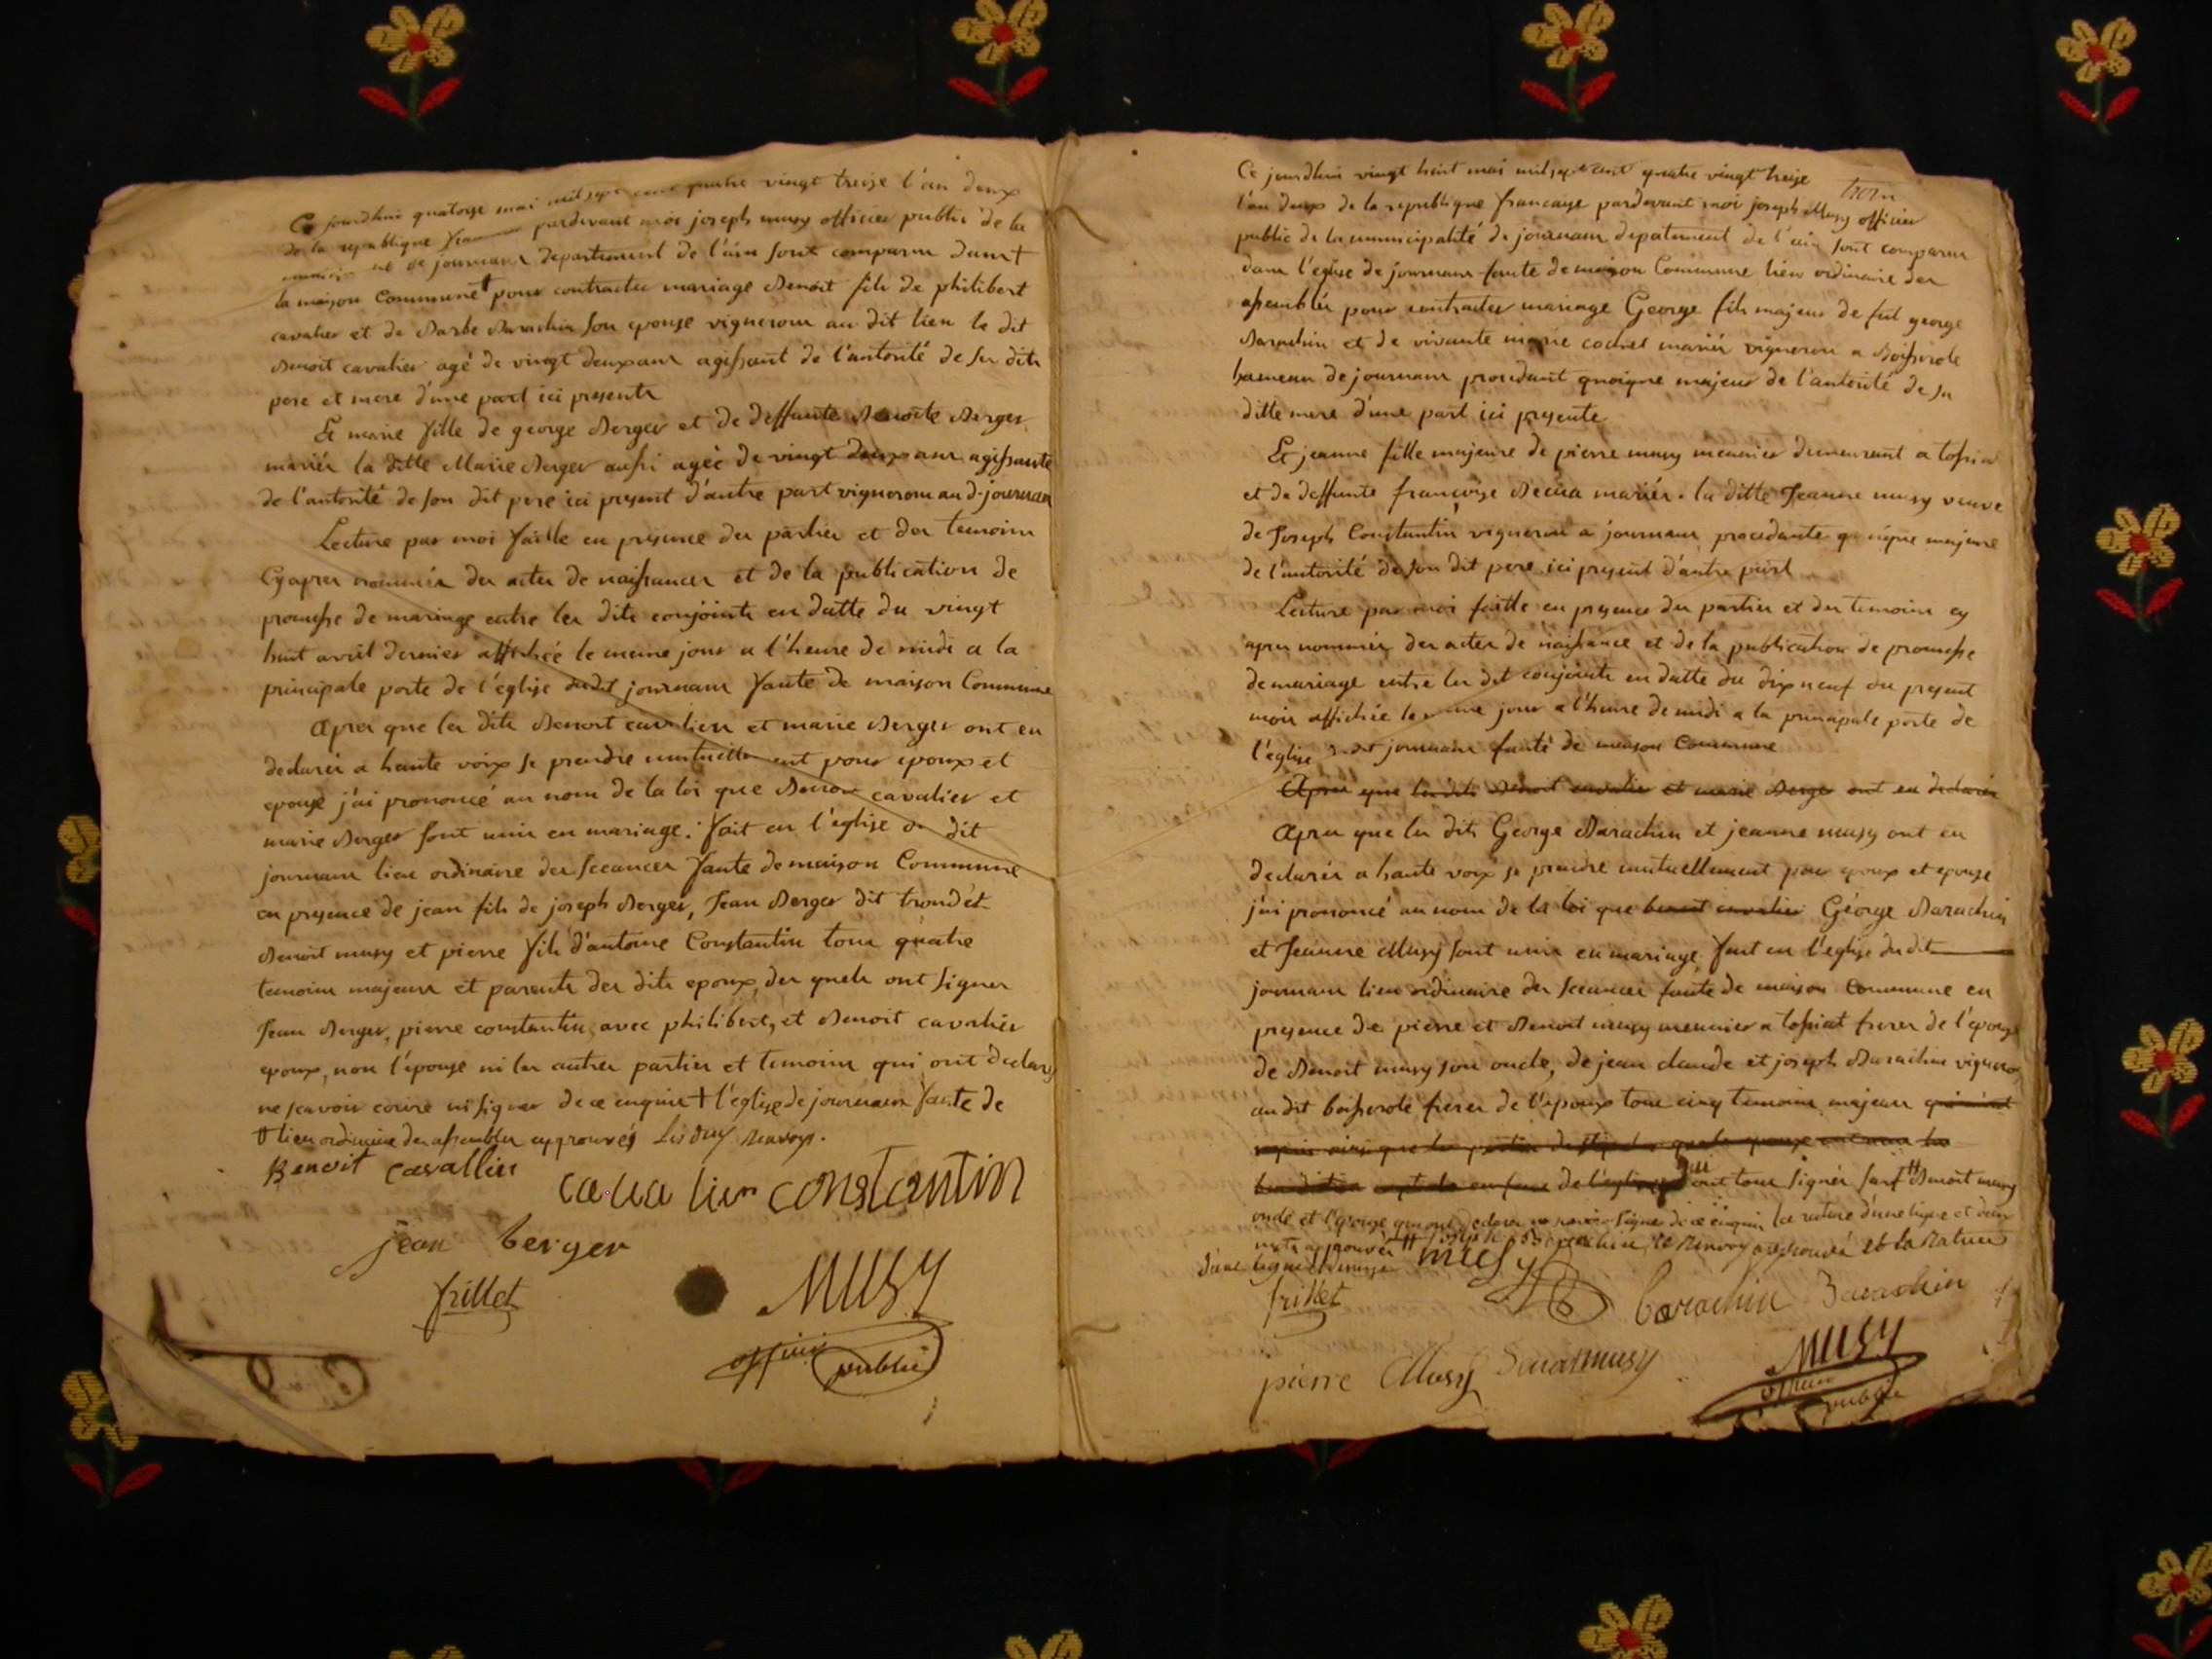 Ce jourdhui quatorze mai mil sept cent quatre vingt treize l'an deux
de la republique pardevant moi joseph musy officier public de la
de journans departement de l'ain sont comparus dans†
la maison Commune† pour contracter mariage Benoit fils de philibert
cavalier et de Barbe Barachin son epouse vignerons au dit lieu le dit
Benoit cavalier agé de vingt deux ans agissant de l'autorité de ses dits
pere et mere d'une part ici presents
Et marie fille de george Berger et de deffunte Benoite Berger
mariés la ditte Marie Berger aussi agée de vingt deux ans agissante
de l'autorité de son dit pere ici present d'autre part vignerons au d. journans
Lecture par moi faitte en presence des parties et des temoins
Cy apres nommés des actes de naissances et de la publication de
promesse de mariage entre les dits conjoints en datte du vingt
huit avril dernier affichée le meme jour a l'heure de midi a la
principale porte de l'eglise dudit journans faute de maison Commune
Apres que les dits Benoit cavalier et marie Berger ont eu
declarés a haute voix se prendre mutuellement pour epoux et
epouse j'ai prononcé au nom de la loi que Benoit cavalier et
marie Berger sont unis en mariage. fait en l'eglise du dit
journans lieu ordinaire des sceances faute de maison Commune
en presence de jean fils de joseph Berger, Jean Berger dit trondet
Benoit musy et pierre fils d'antoine Constantin tous quatre
temoins majeurs et parents des dits epoux, des quels ont signer
Jean Berger, pierre constantin, avec philibert, et Benoit cavalier
epoux, non l'épouse ni les autres parties et temoins qui ont declarés
ne scavoir ecrire ni signer de ce enquis † l'eglise de journans faute de
† lieu ordinaire des assemblés approuvés les deux renvoys.
Benoit cavallier
cavalier constantin
jean berger
frillet
MUSY
officier public
Ce jourdhui vingt huit mai mil sept cent quatre vingt treize
l'an deux de la republique francaise pardevant moi joseph Musy officier
public de la municipalité de journans depatement de l'ain sont comparus
dans l'eglise de journans faute de maison Commune lieu ordinaire des
assemblés pour contracter mariage George fils majeur de fut george
Barachin et de vivante marie cochet mariés vigneron a Boisserole
hameau de journans procedant quoique majeur de l'autorité de sa
ditte mere d'une part ici presente
Et jeanne fille majeure de pierre musy meunier demeurant a tossia
et de deffunte françoise mariés. la ditte Jeanne musy veuve
de Joseph Constantin vigneron a journans procedante quoique majeure
de l'autorité de son dit pere ici present d'autre part
Lecture par moi faitte en presence des parties et des temoins cy
apres nommés des actes de naissance et de la publication de promesse
de mariage entre les dit conjoints en datte du dix neuf du present
mois affichée le meme jour a l'heure de midi a la principale porte de
l'eglise dudit journans faute de maison Commune
Apres que les dits Benoit cavalier et marie Berger ont eu declarés
Apres que les dits George Barachin et jeanne musy ont eu
declarés a haute voix se prendre mutuellement pour epoux et epouse
j'ai prononcé au nom de la loi que benoit cavalier George Barachin
et Jeanne Musy sont unis en mariage. fait en l'eglise du dit
journans lieu ordinaire des sceances faute de maison Commune en
presence de pierre et Benoit musy meunier a tossiat freres de l'epouse
de Benoit musy son oncle, de jean claude et joseph Barachin vignerons
au dit boisserole freres de l'epoux tous cinq temoins majeurs
de l'eglise qui ont tous signés sauf # Benoit musy
oncle et l'epouse qui ont declarés ne scavoir signer de ce enquis la rature d'une ligne et
mots approuvés # joseph barachin, le renvoy approuvé et la rature
d'une ligne
musy
frillet
barachin Barachin
pierre Musy
MUSY
officier
public